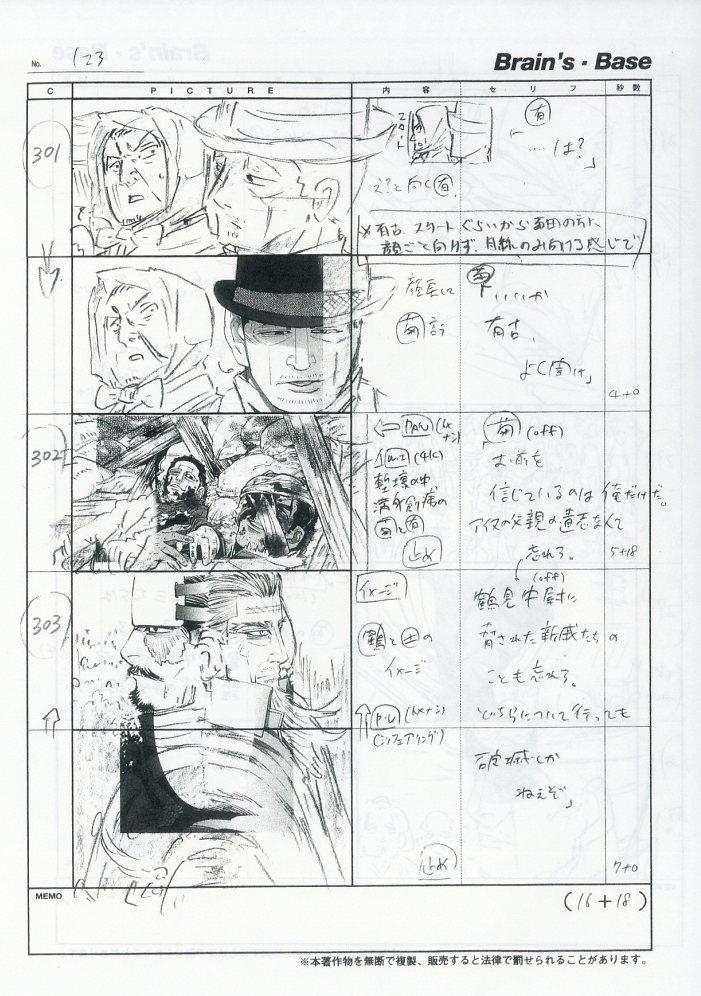 No. 123
Brain's・Base
C PICTURE 内容 セリフ 秒数
301
スタート
え?と向く有
有
「……は?」
※有古、スタートぐらいから菊田の方に
顔ごと向けず、目線のみ向ける感じで
顔戻して
菊言う
菊
「いいか
有古、
よく聞け」
4+0
302
PAN
塹壕の中
満身創痍の
菊と有
止め
菊(off)
お前を
信じているのは俺だけだ。
アイヌの父親の遺志なんて
忘れろ。
5+18
303
イメージ
鶴と土の
イメージ
P.U
止め
(off)
鶴見中尉に
脅された親戚たちの
ことも忘れろ。
どちらについて行っても
破滅しか
ねえぞ」
7+0
MEMO
(16+18)
※本著作物を無断で複製、販売すると法律で罰せられることがあります。